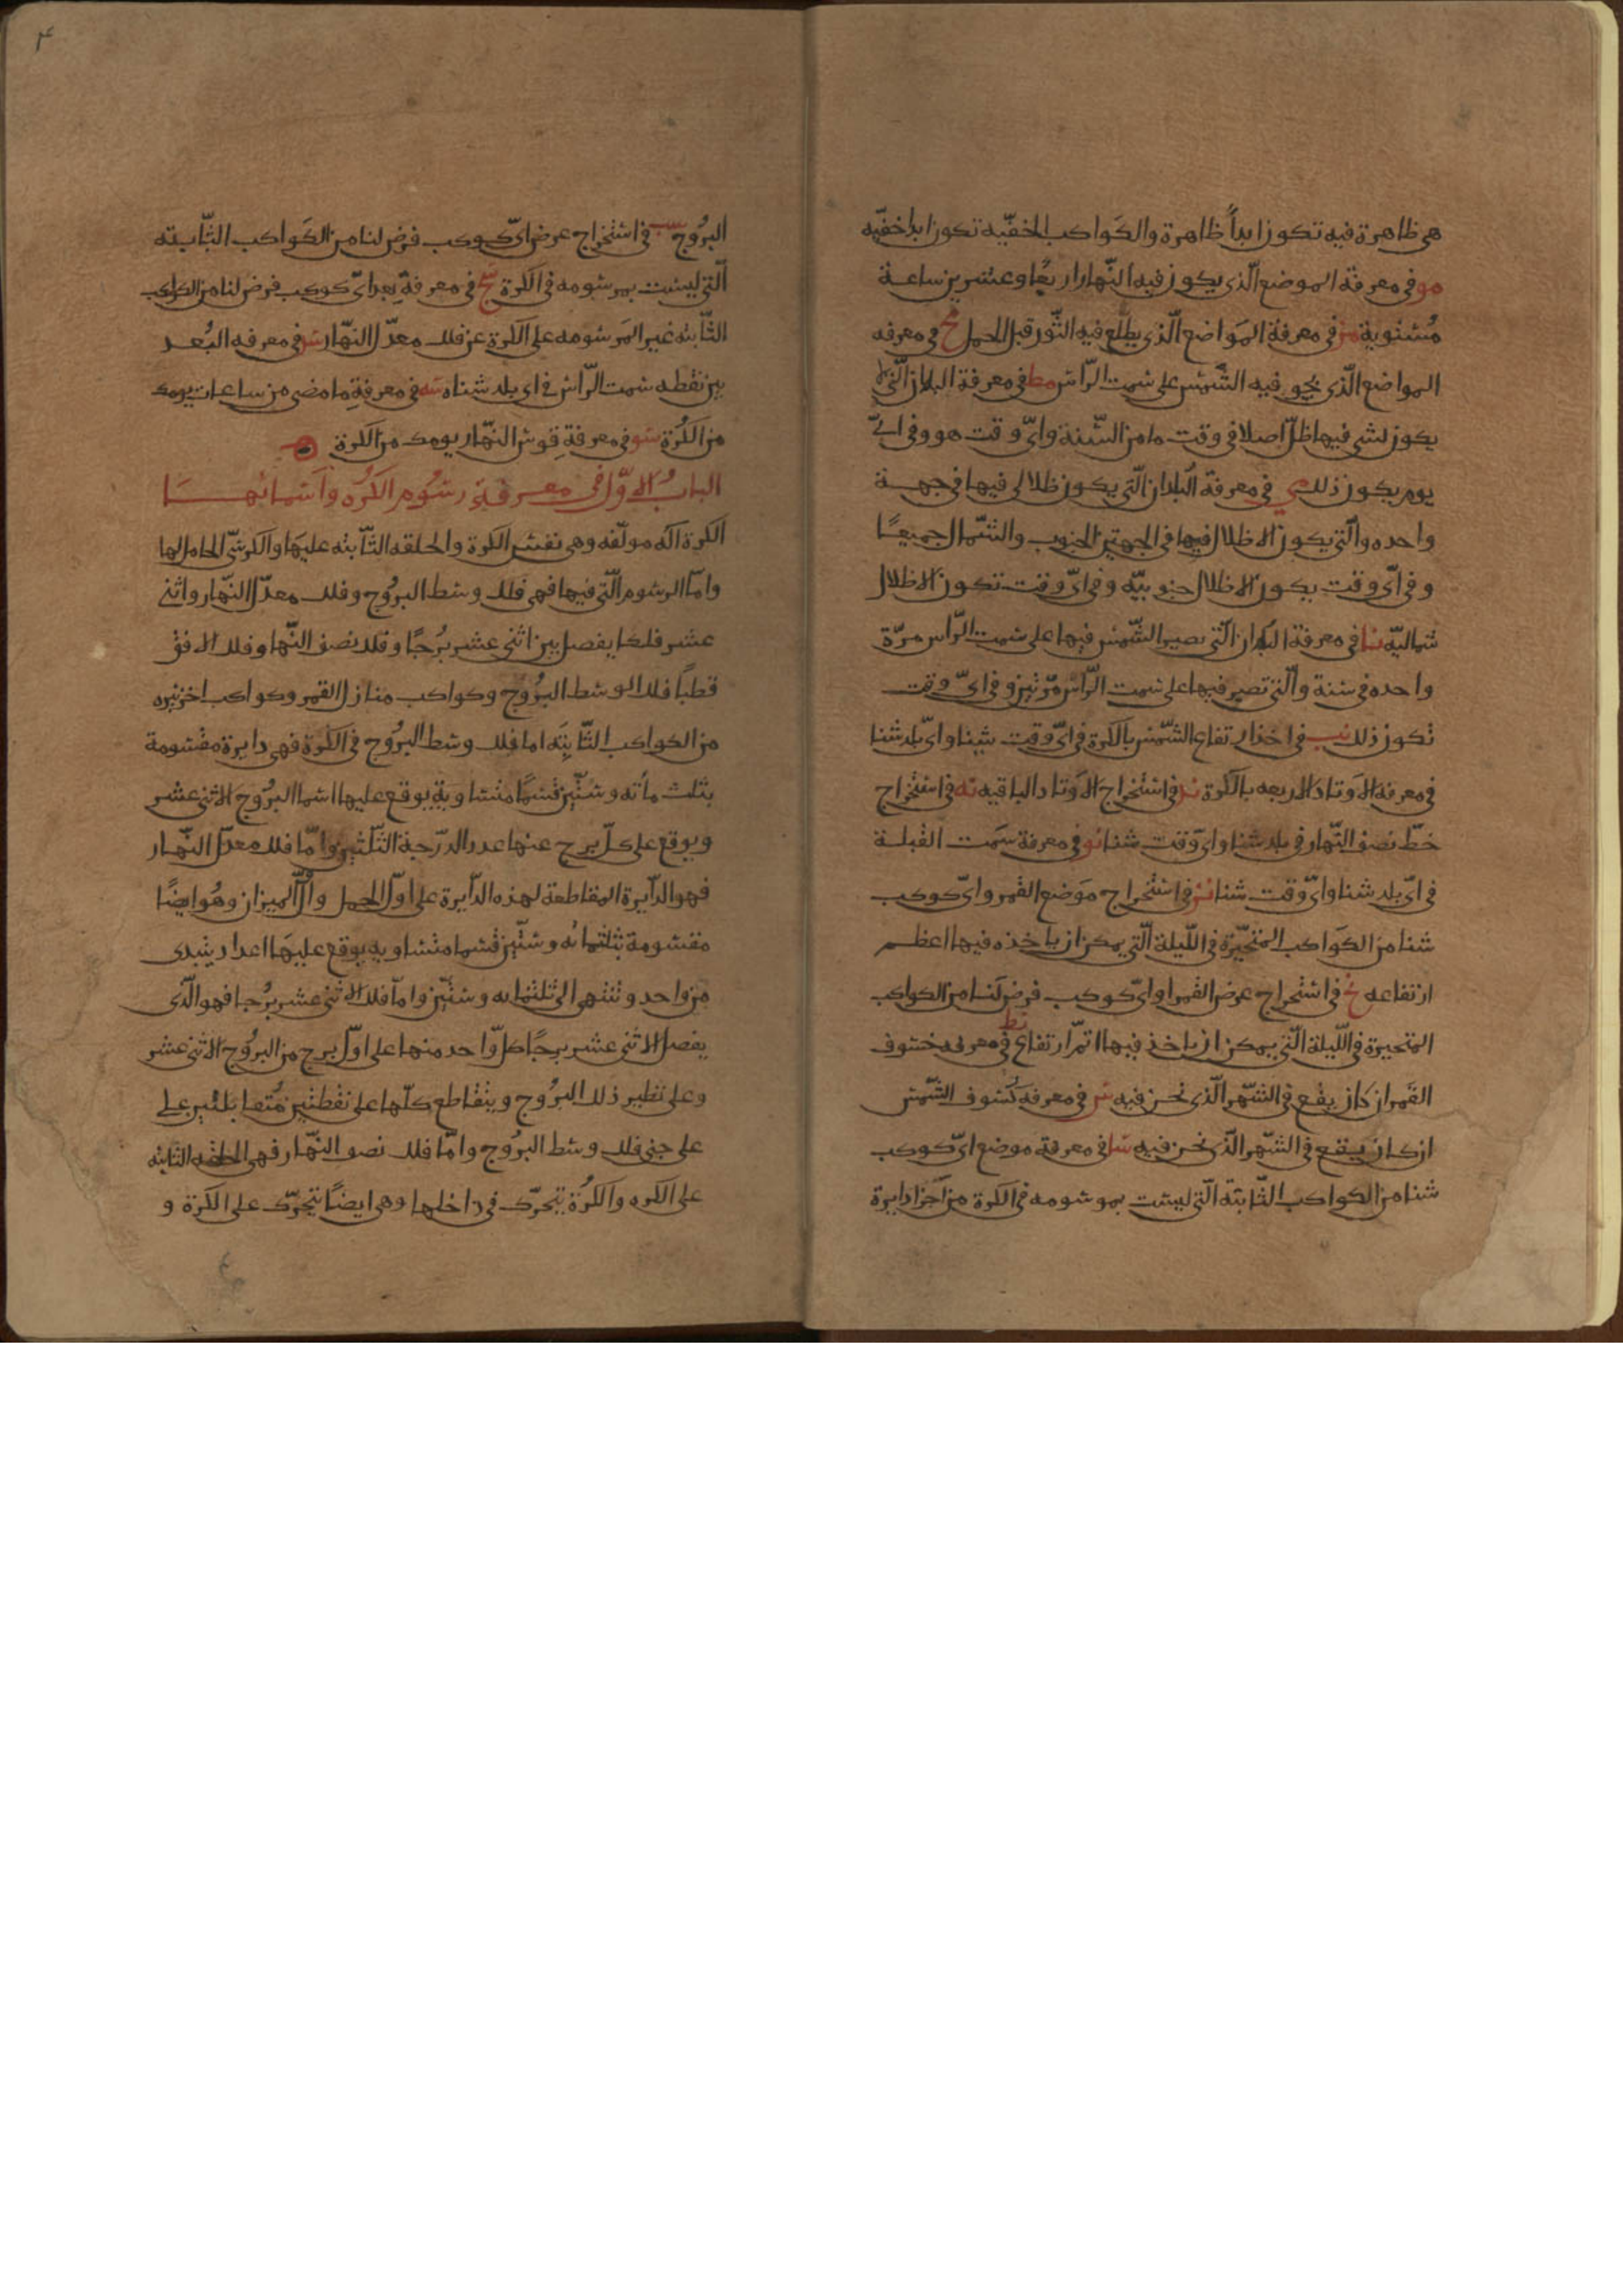 هي ظاهرة فيه تكون ابداً ظاهرة والكواكب الخفيّه تكون ابدا خفيّه
مو في معرفة الموضع الّذي يكون فيه النّهار اربعًا وعشرين ساعة
مُستوية مز في معرفة المَواضع الّذي يطلع فيه الثّور قبل الحمل مح في معرفه
المواضع الّذي يجوز فيه الشّمس على سمت الرّاس مط في معرفة البلدان الّتي لا
يكون لشي فيها ظلّ اصلا في وقت ما من السّنة وايّ وقت هو وفي ايّ
يوم يكون ذلك ن في معرفة البُلدان الّتي يكون ظلالى فيها في جهة
واحده والّتي يكون الاظلال فيها في الجهتين الجنوب والشّمال جميعًا
وفي ايّ وقت يكون الاظلال جنوبيّه وفي ايّ وقت تكون الاظلال
شماليّه نا في معرفة البلدان الّتي تصير الشّمس فيها على سمت الرّاس مرّة
واحده في سنة والّتي تصير فيها على سمت الرّاس مرّتين وفي ايّ وقت
تكون ذلك نب في اخذ ارتفاع الشّمس بالكرة في ايّ وقت شينا وايّ بلد شنا
في معرفة الاوتاد الاربعه بالكرة ند في استخراج الاوتاد الباقيه نه في استخراج
خطّ نصف النّهار في بلد شنا واي وقت شنا نو في معرفة سَمت القبلة
في ايّ بلد شنا وايّ وقت شنا نز في استخراج مَوضع القمر وايّ كوكب
شنا من الكَواكب المتحيّرة في اللّيلة الّتي يمكن ان ياخذ فيها اعظم
ارتفاعه نح في استخراج عرض القمر او ايّ كوكب فرض لَنا من الكواكب
المتحيرة في اللّيلة الّتي يمكن ان ياخذ فيها اتمّ ارتفاع نط في معرفه خسوف
القمر ان كان يقع في الشّهر الّذي نحن فيه س في معرفه كُسوف الشّمس
ان كان يقع في الشّهر الّذي نحن فيه سا في معرفة موضع ايّ كوكب
شنا من الكواكب الثّابتة الّتي ليست بموسومه في الكرة من اجزا دايرة
البرُوج سب في استخراج عرض ايّ كوكب فرض لنا من الكَواكب الثّابته
الّتي ليست بمرسومه في الكرة سج في معرفة بعد ايّ كوكب فرض لنا من الكواكب
الثّابته غير المَرسومه على الكرة عن فلك معدّل النّهار سد في معرفه البُعد
بين نقطه سمت الرّاس في اي بلد شناه سه في معرفةِ ما مضى من ساعات يومك
من الكُرة سو في معرفة قوس النهّار يومك من الكرة
الباب الاوّل في معرفة رسُوم الكرُه واَسمائهَا
الكرة اله مولّفه وهي نفس الكرة والحلقه الثّابته عليهَا والكرسّي الحامل لها
وامّا الرسوم الّتي فيها فهي فلك وسط البرُوج وفلك معدّل النّهار واثني
عشر فلكا يفصل بين اثني عشر بُرجًا وفلك نصف النّها وفلك الافق
قطباً فلك الوسط البرُوج وكواكب منازل القمر وكواكب اخر نيره
من الكواكب الثّابتِه اما فلك وسط البرُوج في الكُرة فهي دايرة مقسُومة
بثلث مأته وستّين قسمًا متساويةٍ يوقع عليها اسما البرُوج الاثني عشر
ويوقع على كلّ برج عنها عدد الدّرجة الثّلثين وامّا فلك معدّل النّهار
فهو الدّايرة المقاطعة لهذه الدّايرة على اوّل الحمل واوّل الميزان وهُو ايضًا
مقسُومة بثلثمائه وستّين قسما متساويه يوقع عليهَا اعداد يبتدى
من واحد وتنتهي الى ثلثمايه وستّين وامّا فلك الاثني عشر بُرجا فهو الّذي
يفصل الاثني عشر برجًا كلّ واحد منها على اوّل برج من البرُوج الاثني عشر
وعلى نظير ذلك البرُوج ويتقاطع كلّها على نقطتين مُتقابلتين على
على جنبي فلك وسط البرُوج وامّا فلك نصف النّهار فهي الحلقه الثابته
على الكره والكُرة تتحرّك في داخلها وهي ايضًا تتحرّك على الكرة و